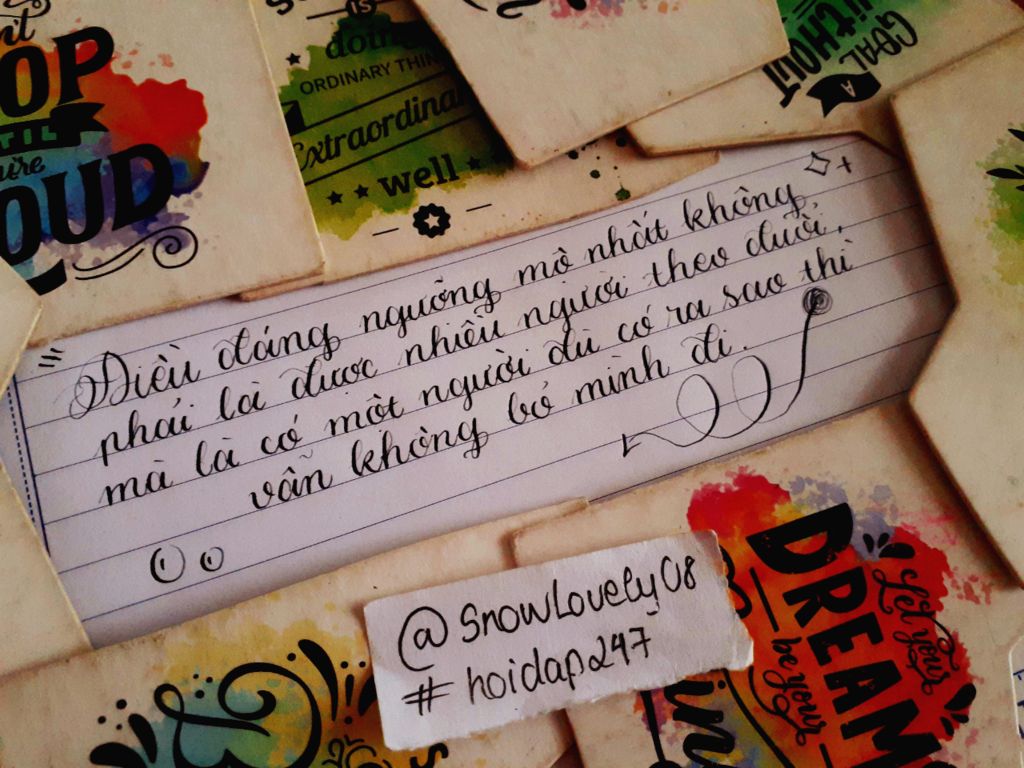 OP
TIL
OUD
IS
doing
ORDINARY THIN
Extraordinar
well
GOAL
WITHOUT
A
Điều đáng ngưỡng mộ nhất không
phải là được nhiều người theo đuổi,
mà là có một người dù có ra sao thì
vẫn không bỏ mình đi.
@SnowLovely08
# hoidap247
Let your
DREAM
be your